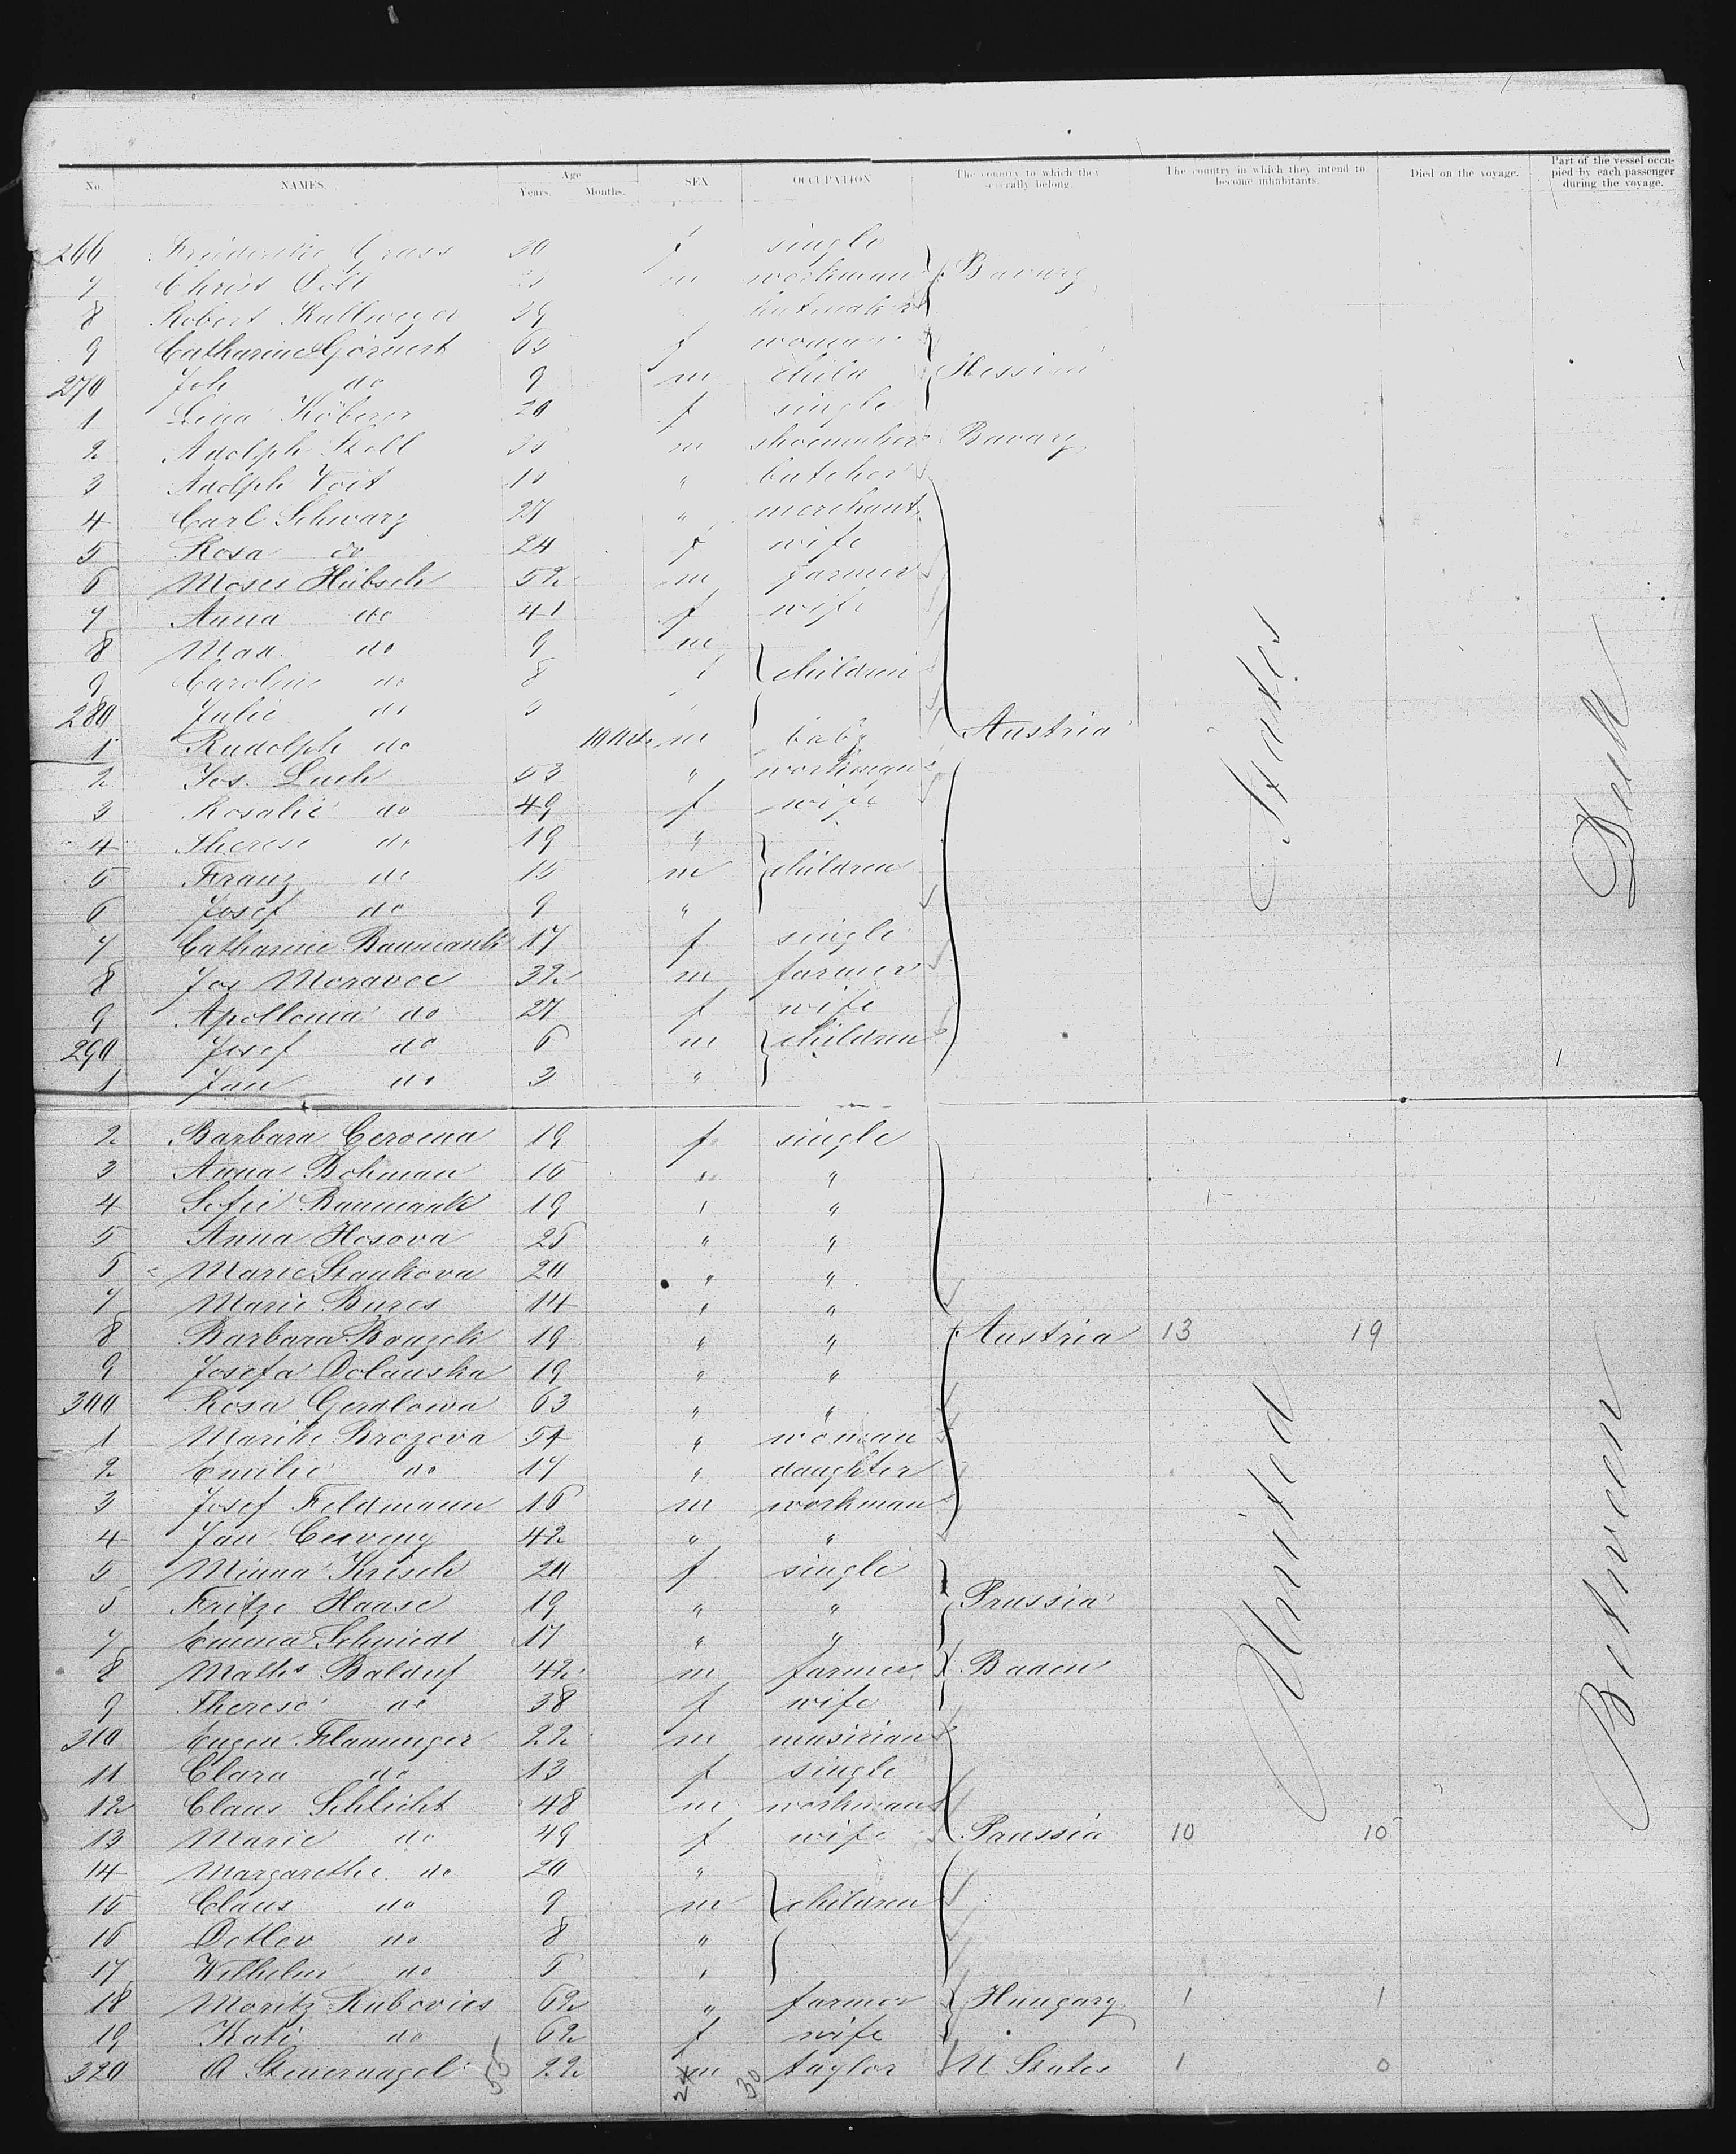 No. NAMES. Age Years. Months. SEX OCCUPATION The country to which they severally belong. The country in which they intend to become inhabitants. Died on the voyage. Part of the vessel occupied by each passenger during the voyage.
266 Friederike Grass 30 f single
7 Christ m workman Bavary
8 Robert Kallweger 29
9 Catharine Görnert 63 f woman
270 Joh do 9 m child Hessia
1 Lina Köberer 20 f single
2 Adolph Stoll m shoemaker Bavary
3 Adolph Voit " butcher
4 Carl Schwarz 27 " merchant
5 Rosa do 24 f wife
6 Moses Hübsch 52 m farmer
7 Anna do 41 f wife
8 Max do 9 m
9 Caroline do 8 f children
280 Julie do 3
1 Rudolph do m baby Austria
2 Jos. Luch 53 " workman
3 Rosalie do 49 f wife
4 Therese do 19 "
5 Franz do 15 m children
6 Josef do 9 "
7 Catharine Baumank 17 f single
8 Jos Moravec 32 m farmer
9 Apollonia do 27 f wife
290 Josef do 6 m children
1 Jan do 3 "
2 Barbara Ceroena 19 f single
3 Anna Bohman 16 " "
4 Sofie Baumank 19 " "
5 Anna Hosova 26 " "
6 Marie Stankova 20 " "
7 Marie Bures 14 " "
8 Barbara Bouzek 19 " " Austria 13 19
9 Josefa Dolanska 19 " "
300 Rosa Gerdlowa 63 " "
1 Marike Brozova 54 " woman
2 Emilie do 17 " daughter
3 Josef Feldmann 16 m workman
4 Jan Cerveny 42 " "
5 Minna Krisch 20 f single
6 Fritze Haase 19 " " Prussia
7 Emma Schmidt 17 " "
8 Maths Balduf 42 m farmer Baden
9 Therese do 38 f wife
310 Eugen Flaminger 22 m musician
11 Clara do 13 f single
12 Claus Schlicht 48 m workman
13 Marie do 49 f wife Prussia 10 10
14 Margarethe do 20 "
15 Claus do 9 m children
16 Detlev do 8 "
17 Wilhelm do 6 "
18 Moritz Rubovics 62 " farmer Hungary 1 1
19 Kati do 62 f wife
320 A Steuernagel 22 m taylor U States 1 0
55 24 30
United States
Between Deck